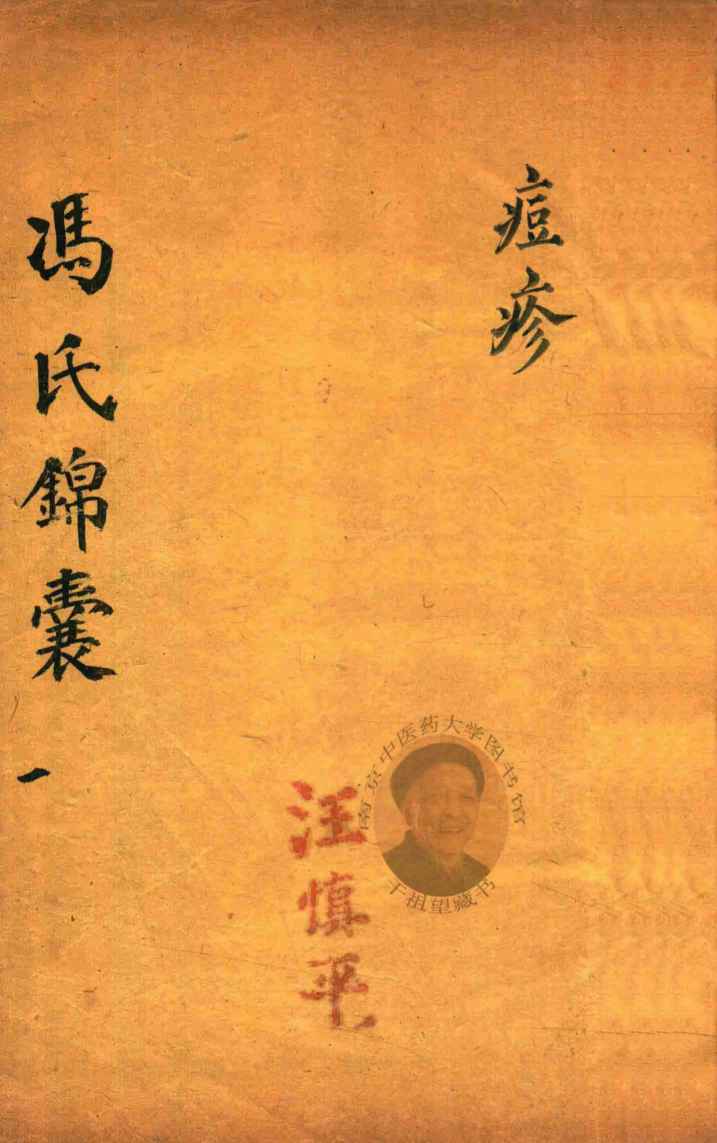 痘疹
馮氏錦囊 一
汪慎平
南京中医药大学图书馆
干祖望藏书